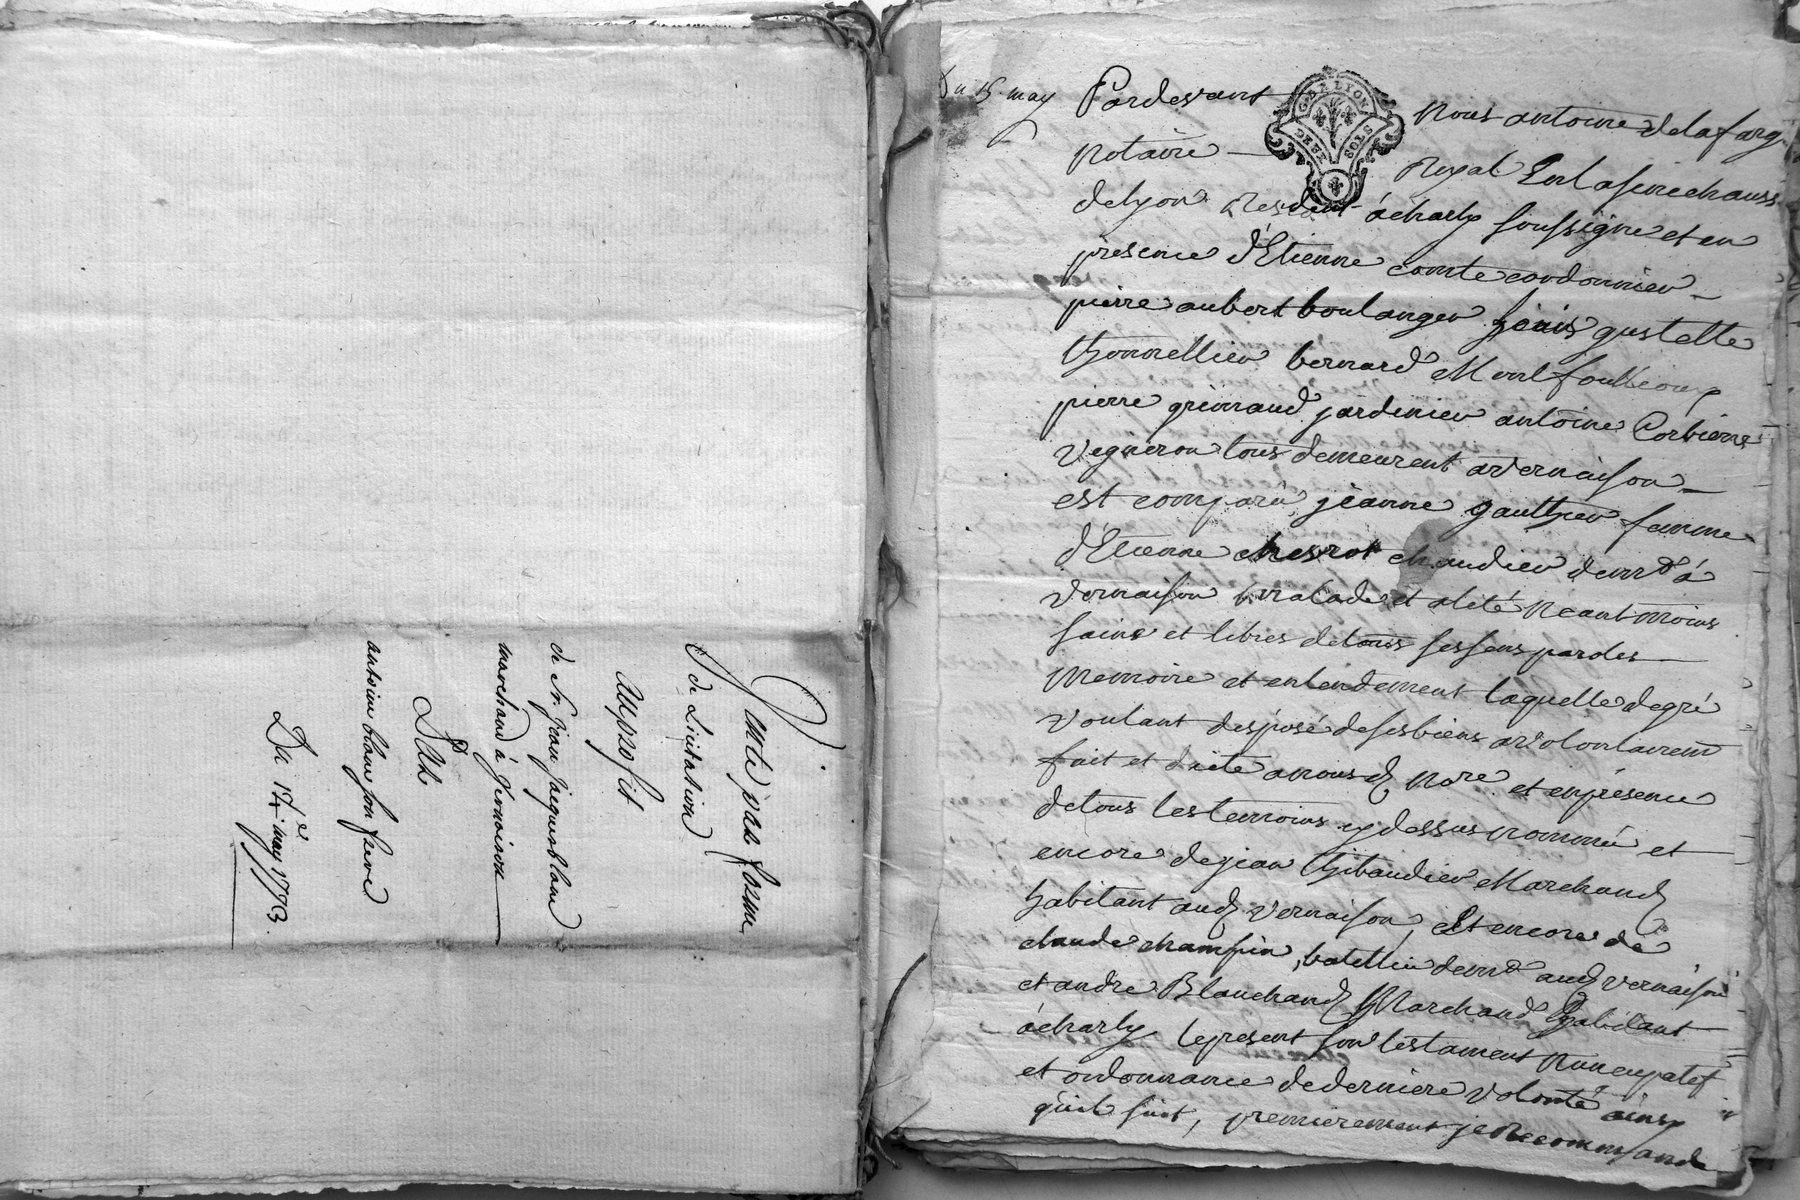 Vente par forme
de Licitation
Au profit
de Sr. Jean Jacques blanc
marchand à Vernaison
Par
antoine blanc son frere
Du 14e may 1773.
Du 15 may
Pardevant Nous antoine delafarg
G. DE LYON
DEUX SOLS
notaire Royal En la senechauss
delyon Resident acharly soussigne et en
presence d'Etienne comte cordonnier
pierre aubert boulanger gustelle
thonnellier bernard Montfoulloup
pierre grimaud jardinier antoine Corbiere
vegneron tous demeurent avernaison
est comparu jeanne gauthier femme
d'Etienne chevrot chaudier demt à
vernaison malade et aleté neantmoins
saine et libres detous ses sens paroles
memoire et entendement laquelle degré
voulant desposé desesbiens a volontairemt
fait et dicte anous d nore et enpresence
detous les temoins cy dessus nommé et
encore dejean thibaudier Marchand
habitant aud vernaison, Et encore de
claude champin, batellier demt aud vernaison
et andre Blanchard Marchand habitant
àcharly lepresent son testament nuncupatif
et ordonnance dederniere volonté ainsy
quil suit, premierement je Recommande